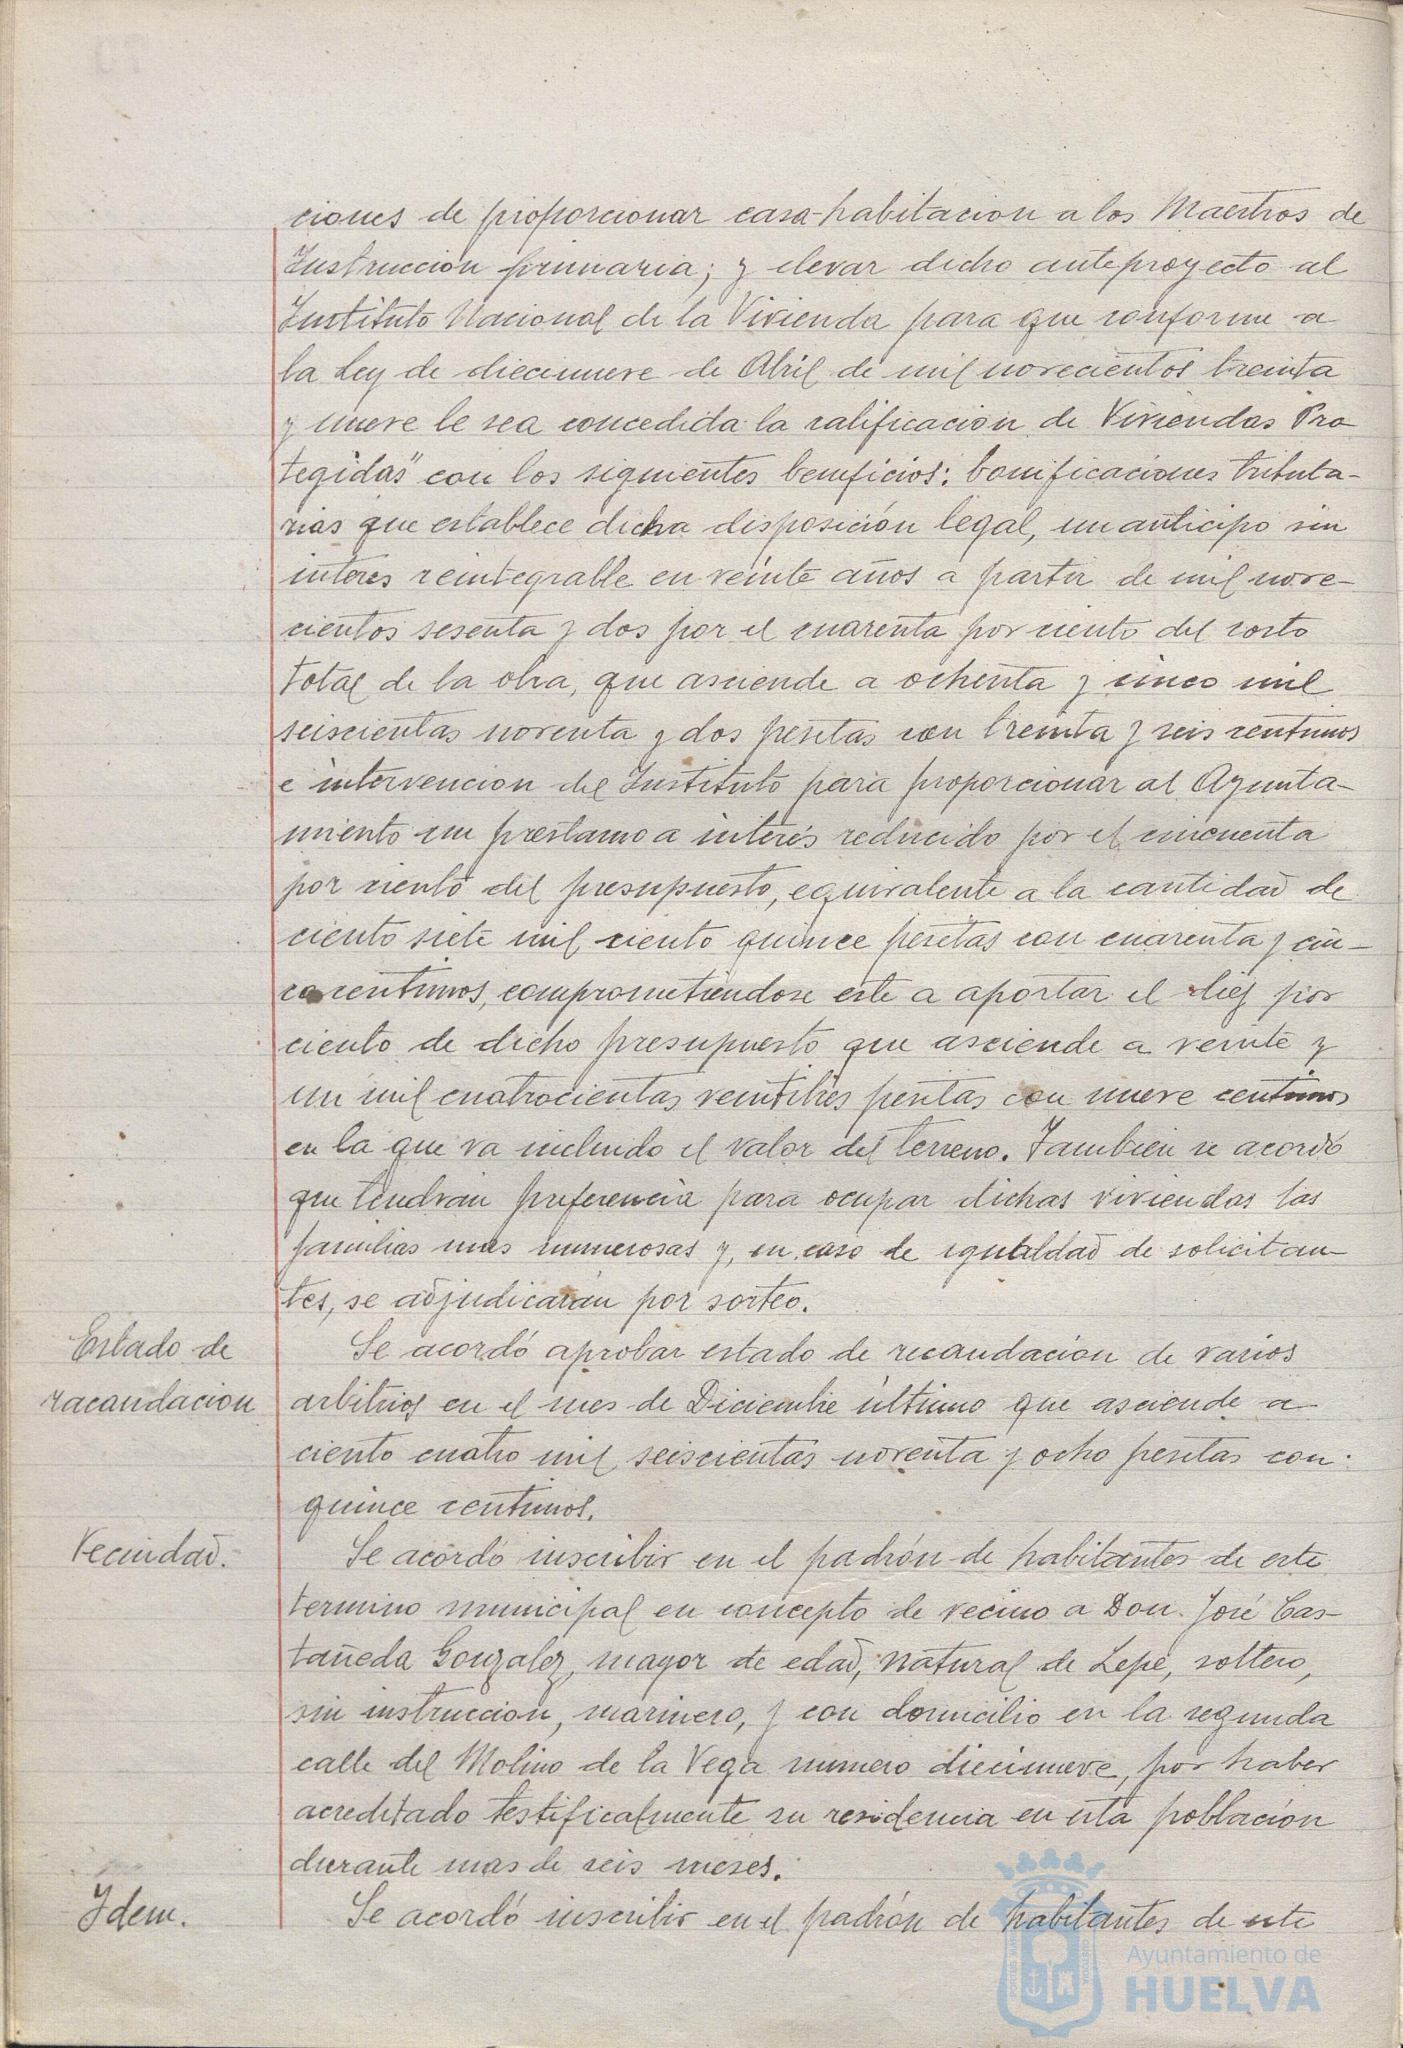 ciones de proporcionar casa-habitacion a los Maestros de
Instruccion primaria; y elevar dicho anteproyecto al
Instituto Nacional de la Vivienda para que conforme a
la Ley de diecinueve de Abril de mil novecientos treinta
y nueve le sea concedida la calificacion de Viviendas Pro
tegidas" con los siguientes beneficios: bonificaciones tributa-
rias que establece dicha disposición legal, un anticipo sin
interes reintegrable en veinte años a partir de mil nove-
cientos sesenta y dos por el cuarenta por ciento del costo
total de la obra, que asciende a ochenta y cinco mil
seiscientas noventa y dos pesetas con treinta y seis centimos
e intervencion del Instituto para proporcionar al Ayunta-
miento un prestamo a interés reducido por el cincuenta
por ciento del presupuesto, equivalente a la cantidad de
ciento siete mil ciento quince pesetas con cuarenta y cin-
co centimos, comprometiendose este a aportar el diez por
ciento de dicho presupuesto que asciende a veinte y
un mil cuatrocientas veintitres pesetas con nueve centimos
en la que va incluido el valor del terreno. Tambien se acordó
que tendran preferencia para ocupar dichas viviendas las
familias mas numerosas y, en caso de igualdad de solicitan-
tes, se adjudicarán por sorteo.
Estado de
racaudacion
Se acordó aprobar estado de recaudacion de varios
arbitrios en el mes de Diciembre último que asciende a
ciento cuatro mil seiscientas noventa y ocho pesetas con
quince centimos.
Vecindad.
Se acordó inscribir en el padrón de habitantes de este
termino municipal en concepto de vecino a Don José Cas-
tañeda Gonzalez, mayor de edad, natural de Lepe, soltero,
sin instruccion, marinero, y con domicilio en la segunda
calle del Molino de la Vega numero diecinueve, por haber
acreditado testificalmente su residencia en esta población
durante mas de seis meses.
Idem.
Se acordó inscribir en el padrón de habitantes de este
Ayuntamiento de
HUELVA